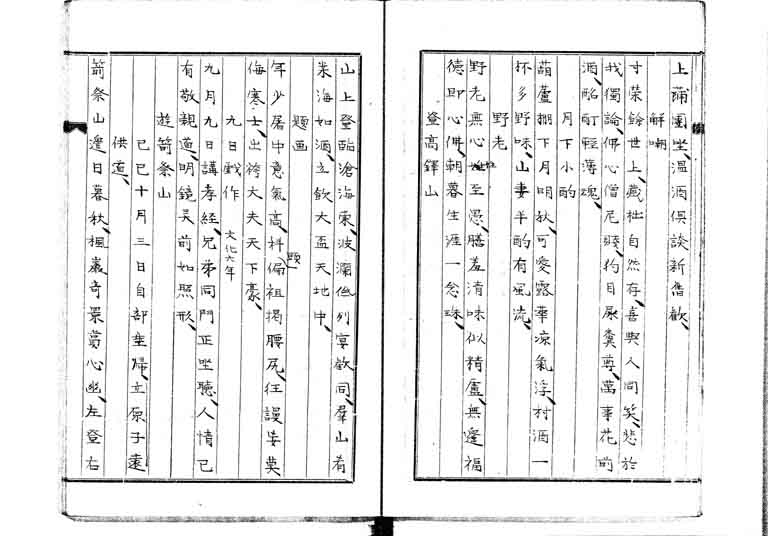 上蒲團坐、温酒倶談新舊歡、
解嘲
寸榮餘世上、藏拙自然存、喜與人同笑、悲於
我獨論、佛心僧尼賤、豹目屎糞尊、萬事花前
酒、酩酊輕薄魂、
月下小酌
葫蘆棚下月明秋、可愛露華涼氣浮、村酒一
杯多野味、山妻半酌有風流、
野老
野老無心至愚、膳羞清味似精盧、無邊福
德即心佛、朝暮生涯一念珠、
登高鐸山
山上登臨滄海東、波瀾低列宴歡同、群山看
來海如酒、立飲大盃天地中、
題畫
年少屠中意氣高、科偏袒揭腰尻、狂謾安莫
侮寒士、出袴大夫天下豪、
九日戯作 文化六年
九月九日講孝經、兄弟同門正坐聽、人情已
有敬親道、明鏡吴前如照形、
遊箭祭山
己巳十月三日自部歸、立原子遠
供道、
箭祭山邊日暮秋、楓巖奇景蕩心幽、左登右